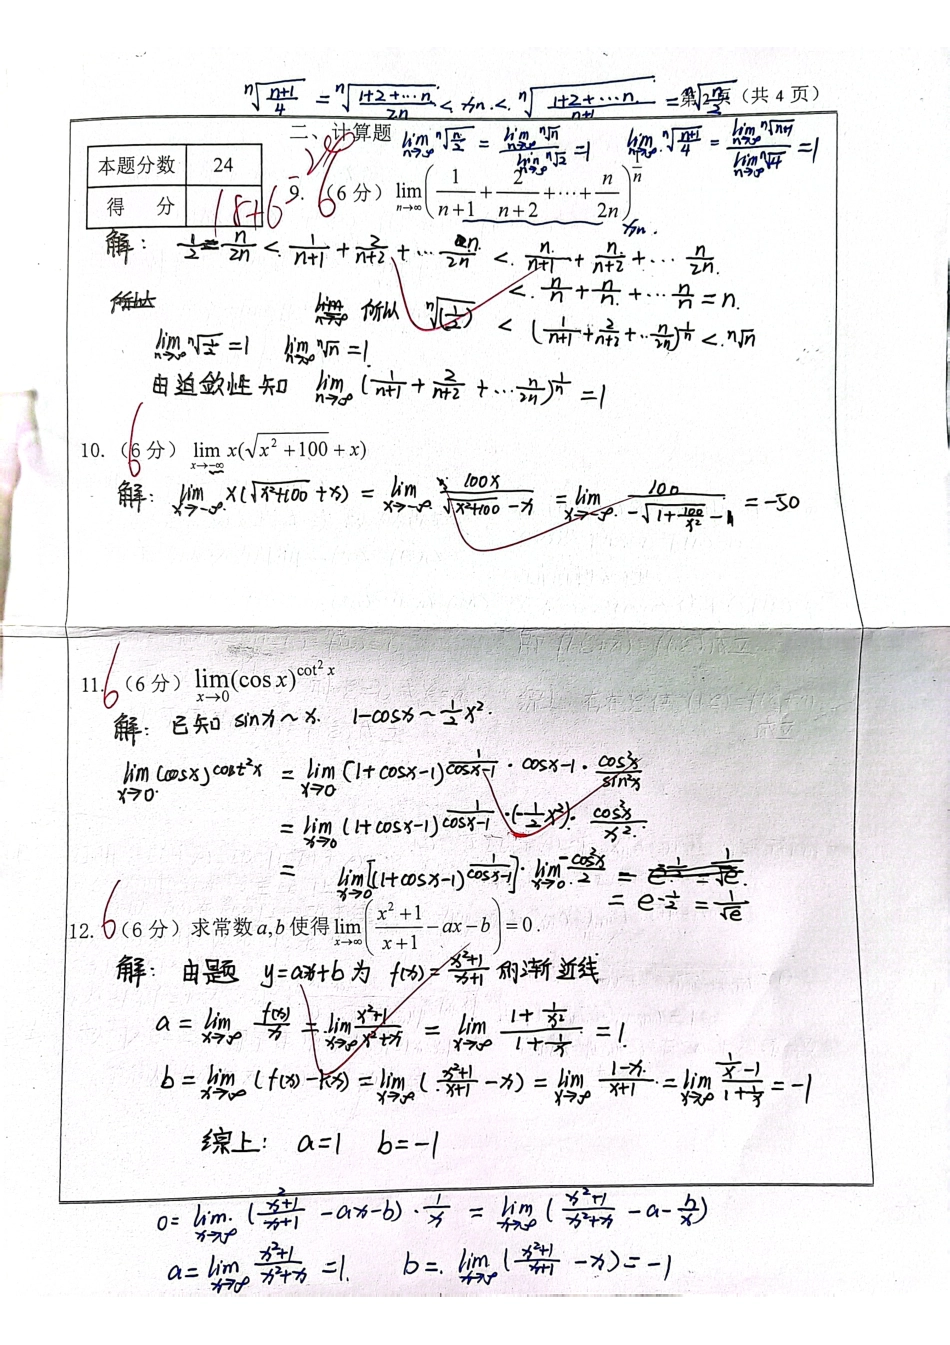 ⁿ√((n+1)/4) = ⁿ√((1+2+…n)/2n) < xn < ⁿ√((1+2+…n)/(n+1)) = ⁿ√(n/2)
第 2 页（共 4 页）
二、计算题
lim_{n→∞} ⁿ√(n/2) = (lim_{n→∞} ⁿ√n)/(lim_{n→∞} ⁿ√2) = 1 lim_{n→∞} ⁿ√((n+1)/4) = (lim_{n→∞} ⁿ√(n+1))/(lim_{n→∞} ⁿ√4) = 1
本题分数 24
得 分 18+6
9. 6（6 分） lim_{n→∞} (1/(n+1) + 2/(n+2) + ⋯ + n/2n)^{1/n}
xn.
解: 1/2 = n/2n < 1/(n+1) + 2/(n+2) + … n/2n < n/(n+1) + n/(n+2) + … n/2n.
< n/n + n/n + … n/n = n.
所以 ⁿ√(1/2) < (1/(n+1) + 2/(n+2) + … n/2n)^{1/n} < ⁿ√n
lim_{n→∞} ⁿ√(1/2) = 1 lim_{n→∞} ⁿ√n = 1.
由迫敛性知 lim_{n→∞} (1/(n+1) + 2/(n+2) + … n/2n)^{1/n} = 1
10.（6 分） lim_{x→−∞} x(√(x²+100) + x)
6
解: lim_{x→−∞} x(√(x²+100) + x) = lim_{x→−∞} 100x/(√(x²+100) − x) = lim_{x→−∞} 100/(−√(1+100/x²) − 1) = −50
11. 6（6 分） lim_{x→0} (cos x)^{cot² x}
解: 已知 sinx ~ x. 1−cosx ~ 1/2 x².
lim_{x→0} (cosx)^{cot²x} = lim_{x→0} (1+cosx−1)^{1/(cosx−1) · cosx−1 · cos²x/sin²x}
= lim_{x→0} (1+cosx−1)^{1/(cosx−1) · (−1/2 x²) · cos²x/x²}
= lim_{x→0} [(1+cosx−1)^{1/(cosx−1)}]^{lim_{x→0} −cos²x/2} = e^{−1/2} = 1/√e
12. 6（6 分）求常数 a,b 使得 lim_{x→∞} ((x²+1)/(x+1) − ax − b) = 0 .
解: 由题 y=ax+b 为 f(x) = (x²+1)/(x+1) 的渐近线
a = lim_{x→∞} f(x)/x = lim_{x→∞} (x²+1)/(x²+x) = lim_{x→∞} (1+1/x²)/(1+1/x) = 1.
b = lim_{x→∞} (f(x) − kx) = lim_{x→∞} ((x²+1)/(x+1) − x) = lim_{x→∞} (1−x)/(x+1) = lim_{x→∞} (1/x − 1)/(1+1/x) = −1
综上: a=1 b=−1
0 = lim_{x→∞} ((x²+1)/(x+1) − ax − b) · 1/x = lim_{x→∞} ((x²+1)/(x²+x) − a − b/x)
a = lim_{x→∞} (x²+1)/(x²+x) = 1. b = lim_{x→∞} ((x²+1)/(x+1) − x) = −1